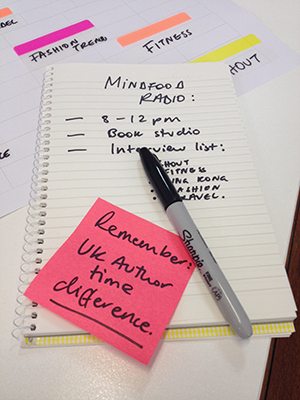 FASHION TREND
FITNESS
HOUT
MINDFOOD
RADIO:
— 8-12 pm
— Book studio
— Interview list:
HOUT
FITNESS
KONG
FASHION
TRAVEL.
Remember:
UK Author
time
difference.
Sharpie